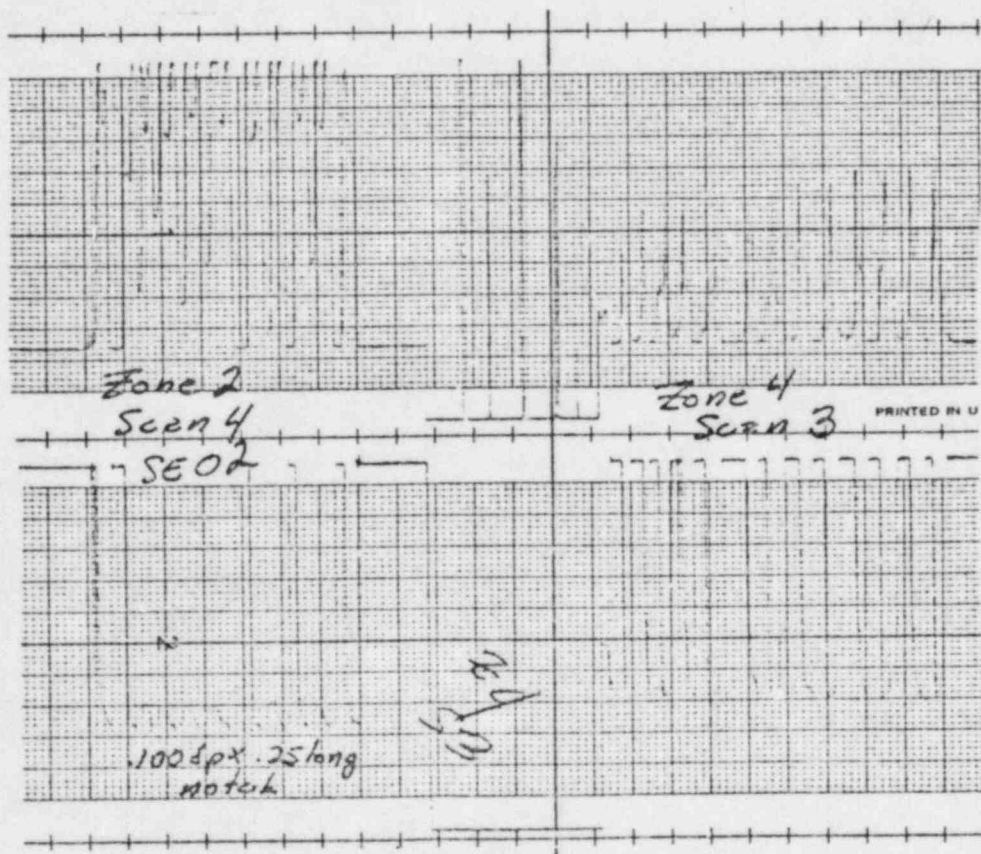 Zone 2
Scan 4
SE02
Zone 4
Scan 3
PRINTED IN U
.100 dp x .25 long
notch